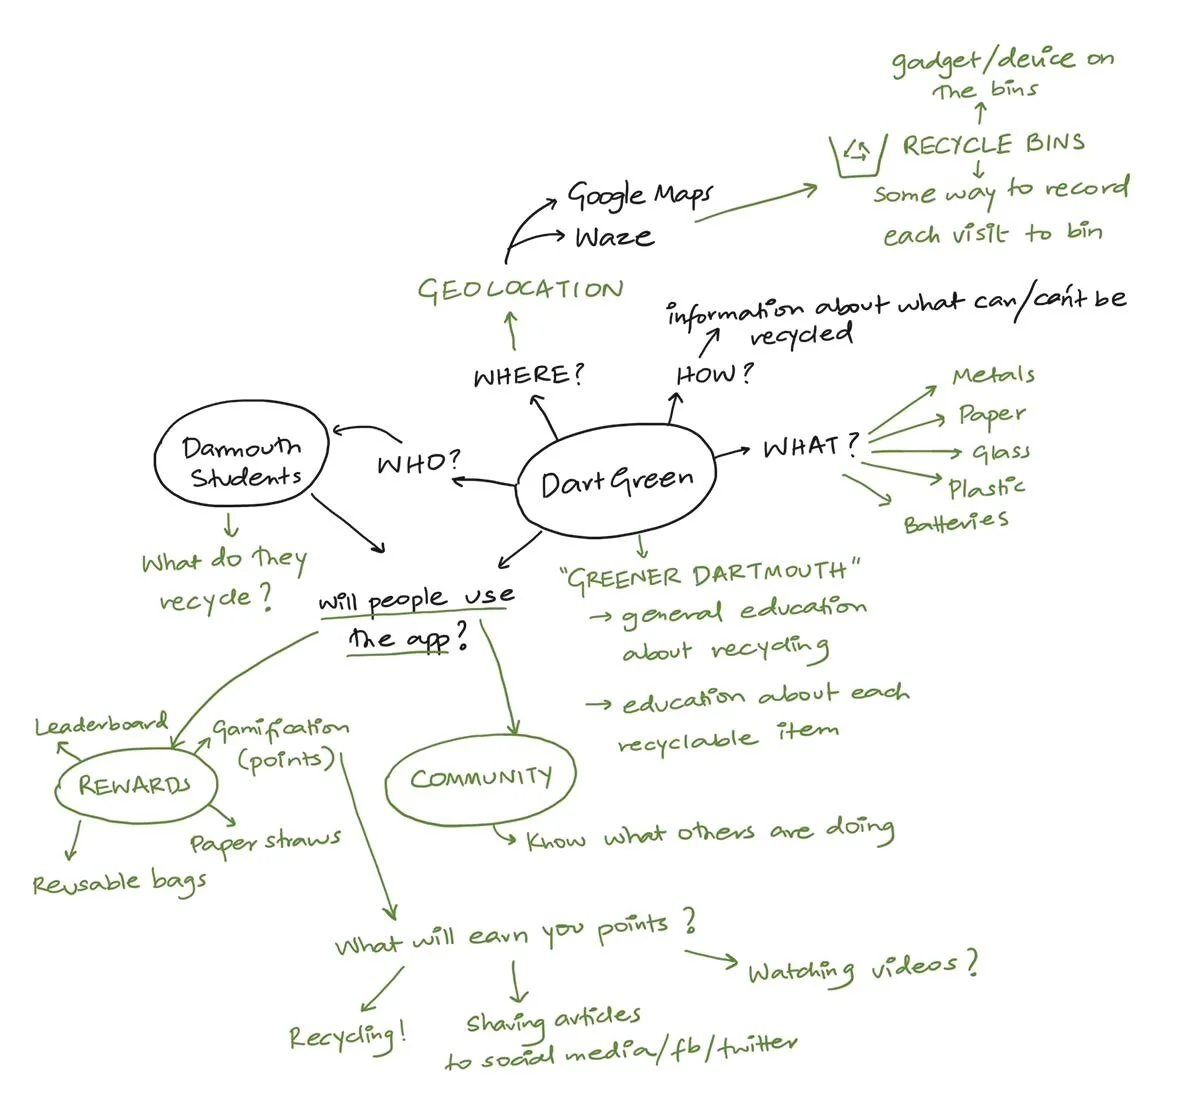 gadget/device on
The bins
RECYCLE BINS
Some way to record
each visit to bin
Google Maps
Waze
GEOLOCATION
information about what can/can't be
recycled
WHERE?
HOW?
Metals
Paper
Glass
Plastic
Batteries
WHAT?
Darmouth
Students
WHO?
DartGreen
What do they
recycle?
will people use
The app?
"GREENER DARTMOUTH"
→ general education
about recycling
→ education about each
recyclable item
Leaderboard
Gamification
(points)
REWARDS
COMMUNITY
Paper straws
Reusable bags
Know what others are doing
What will earn you points?
Watching videos?
Recycling!
Sharing articles
to social media/fb/twitter